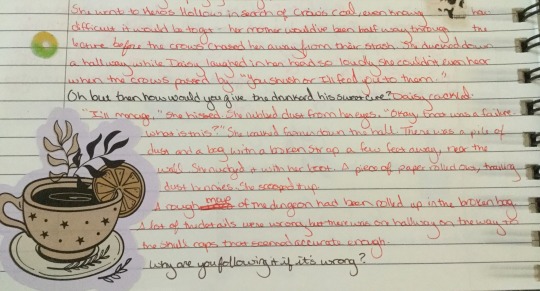 She went to Hero's Hollow in search of Crow's Coal, even knowing how
difficult it would be to get - her mother would've been half way through the
before the crows chased her away from their stash. She ducked down
a hallway while Daisy laughed in her head so loudly she couldn't even hear
when the crows passed by "you shush or I'll feed you to them."
Oh but then how would you give the drunkard his sweet cure? Daisy cackled.
"I'll manage," she hissed. She rubbed dust from her eyes. "Okay, that was a failure.
what is this?" She down the hall. There was a pile of
dust and a bag with a broken strap a few feet away, near the
wall. She nudged it with her boot. A piece of paper rolled out, trailing
dust bunnies. She scooped it up.
A rough map of the dungeon had been rolled up in the broken bag
A lot of the details were wrong, but there was one hallway on the way to
the skull caps that seemed accurate enough.
Why are you following it if it's wrong?